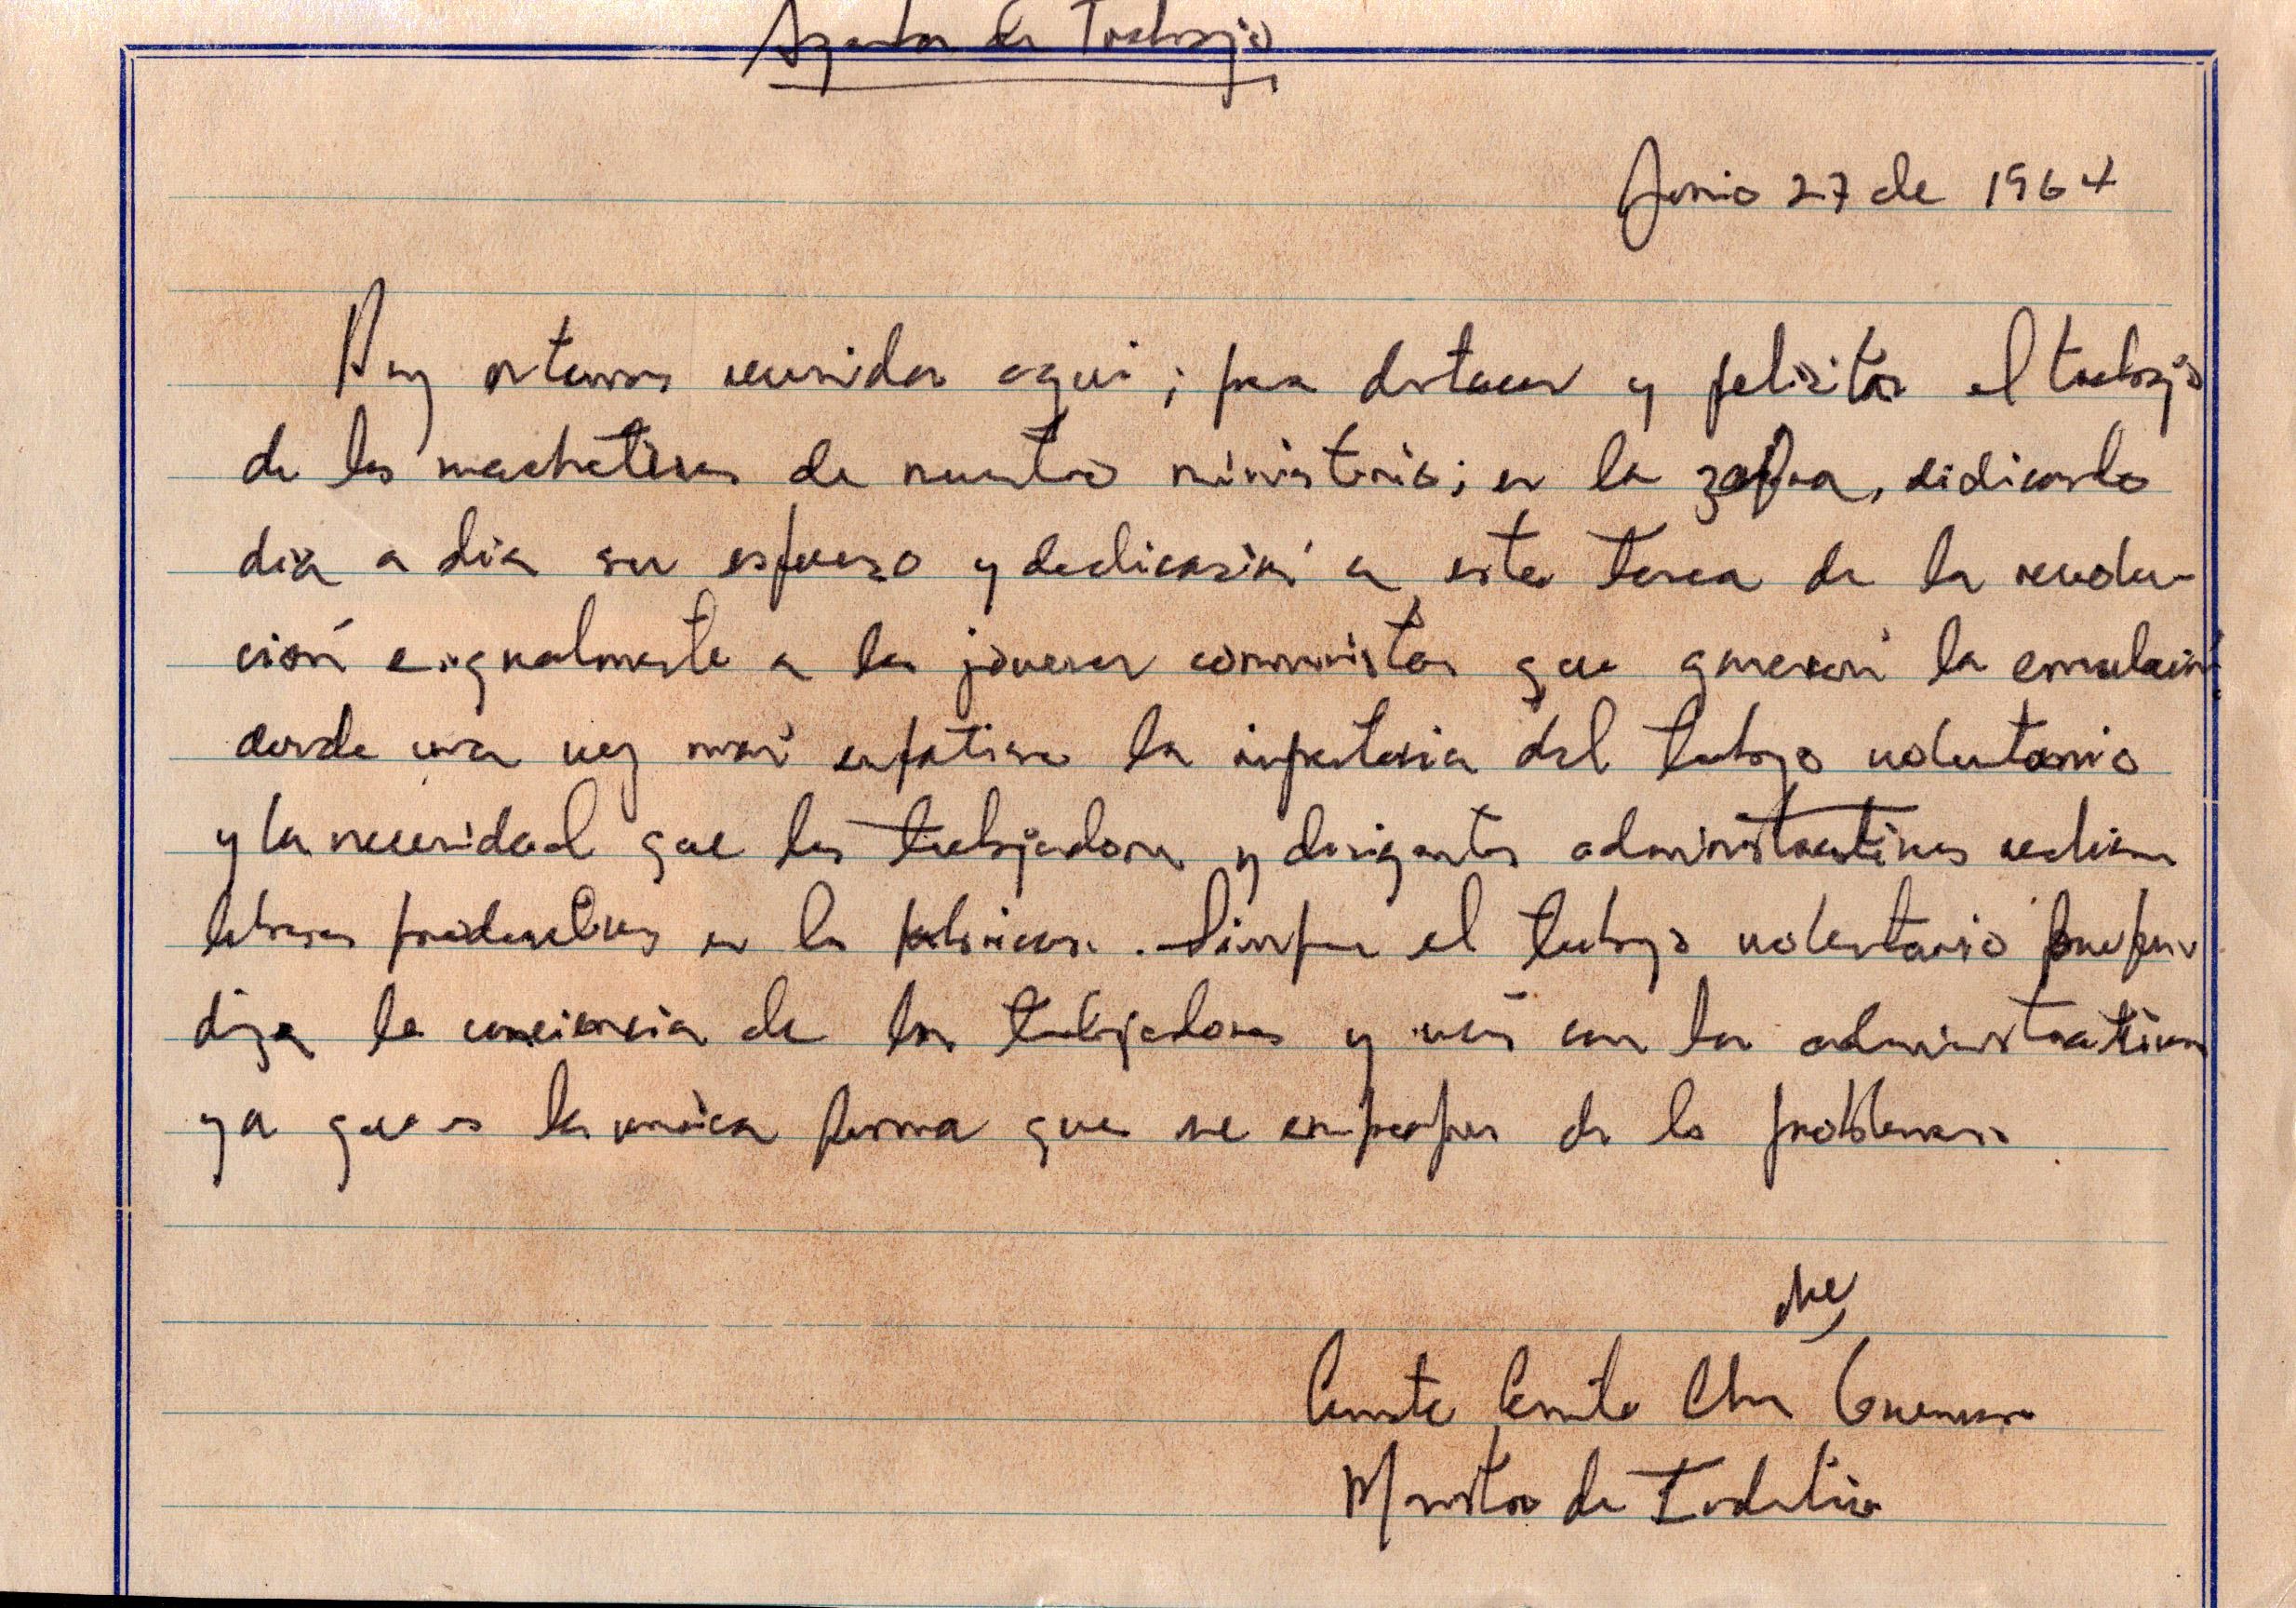 Agenda de Trabajo
Junio 27 de 1964
Hoy estamos reunidos aqui; para destacar y felicitar el trabajo
de los macheteros de nuestro ministerio; en la zafra, didicando
dia a dia su esfuerzo y dedicación a esta tarea de la revolu-
ción e igualmente a los jovenes comunistas que ganaron la emulación
donde una vez más enfatiso la importancia del trabajo voluntario
y la necesidad que los trabajadores y dirigentes administrativos realicen
labores productivas en las fabricas. Siempre el trabajo voluntario
la conciencia de los trabajadores y más con los administrativos
ya que es la unica forma que se de los problemas.
che
Cmte Che Guevara
Ministro de Industria